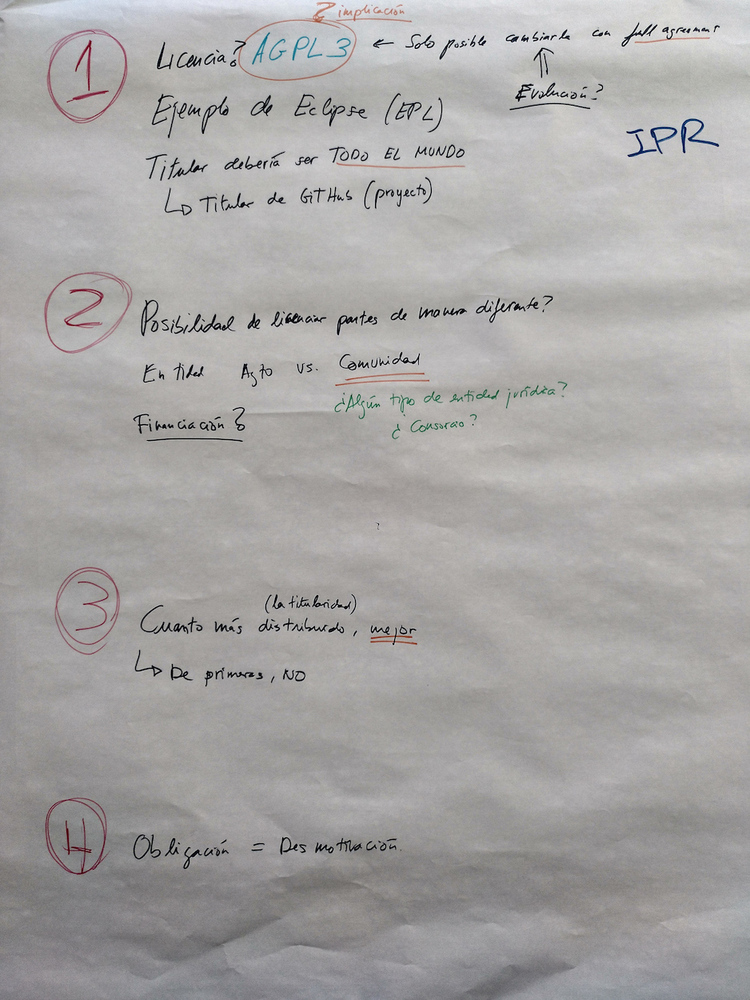 implicación
1 Licencia? AGPL3 ← Solo posible cambiarla con full agreement
Evolución?
Ejemplo de Eclipse (EPL)
IPR
Titular debería ser TODO EL MUNDO
↳ Titular de GitHub (proyecto)
2 Posibilidad de licenciar partes de manera diferente?
Entidad Ayto vs. Comunidad
¿Algún tipo de entidad jurídica?
¿Consorcio?
Financiación?
3 (la titularidad)
Cuanto más distribuido, mejor
↳ De primeras, NO
4 Obligación = Desmotivación.